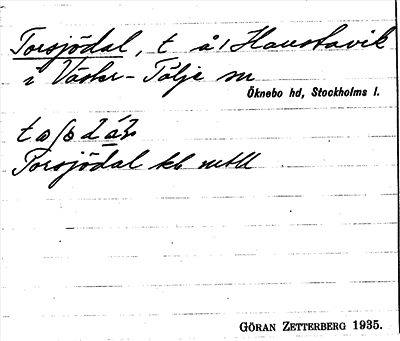 Torsjödal, t å 1 Hanstavik
i Väster-Tälje sn
Öknebo hd, Stockholms l.
Torsjödal kb mtll
GÖRAN ZETTERBERG 1935.